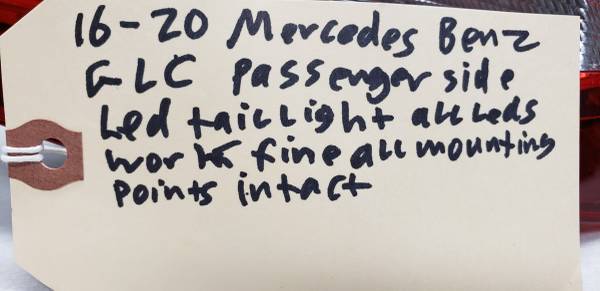 16-20 Mercedes Benz
GLC Passenger side
Led taillight all Leds
work fine all mounting
Points intact